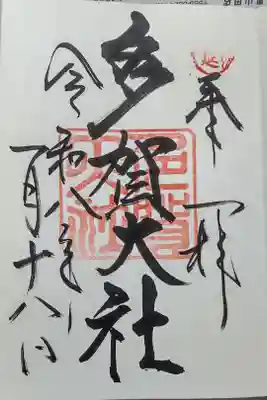 奉拝
多賀大社
令和八年
一月十八日